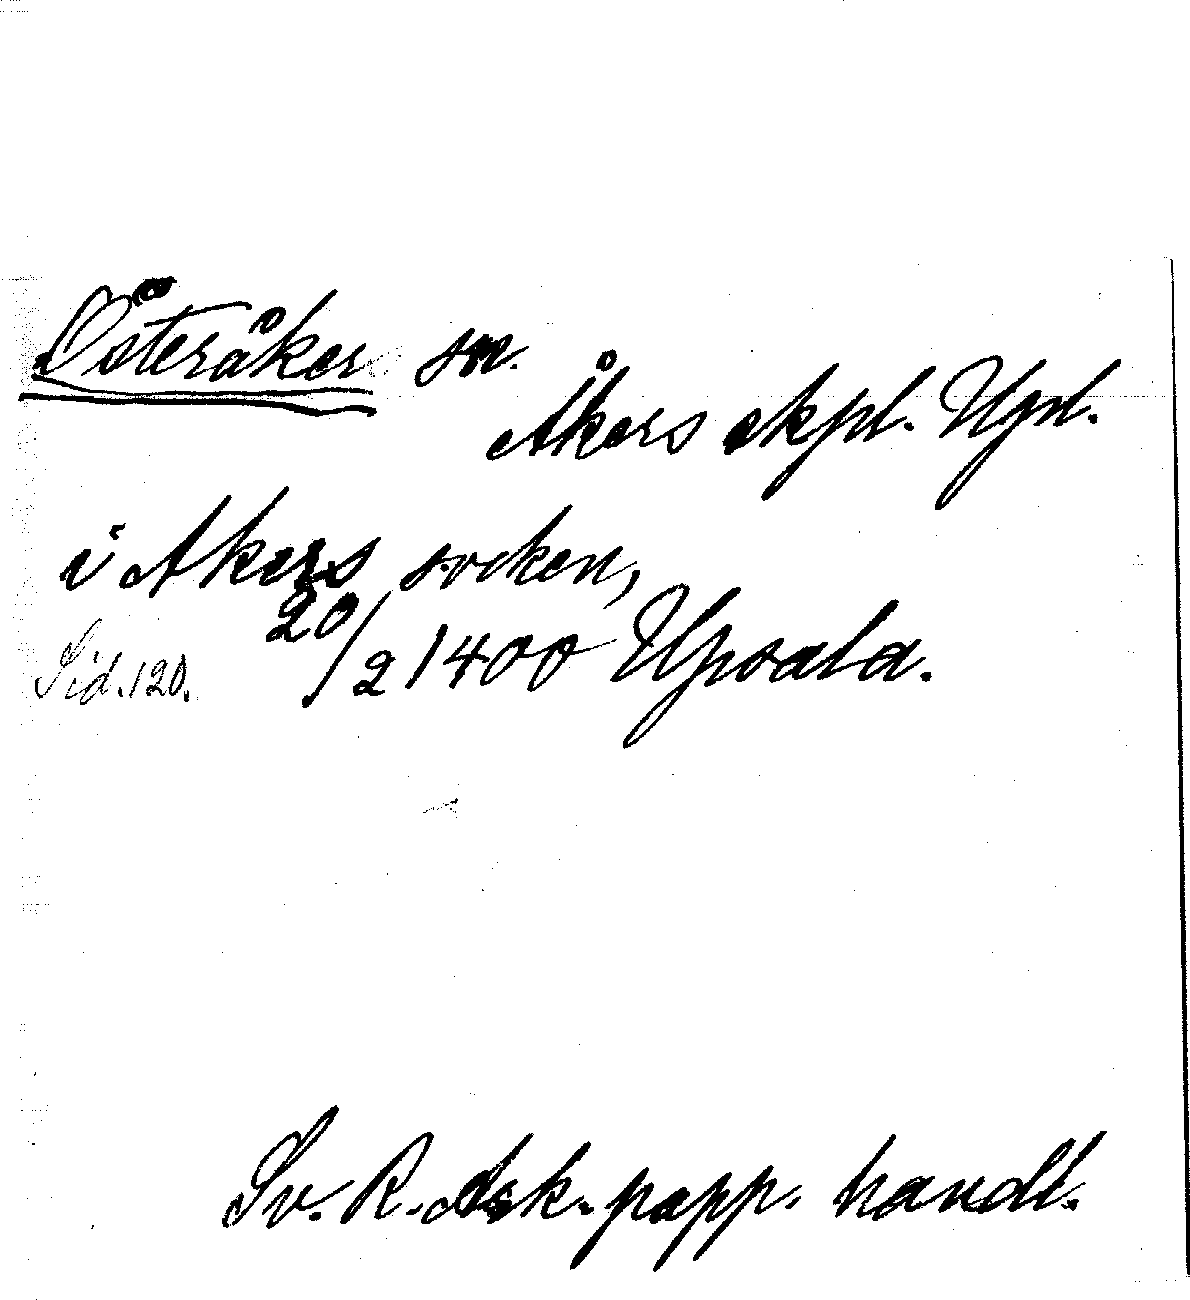 Österåker sn.
Åkers skpl. Upl.
i Akers socken,
Sid. 120. 20/2 1400 Upsala.
Sv. R. Ask. papp. handl.